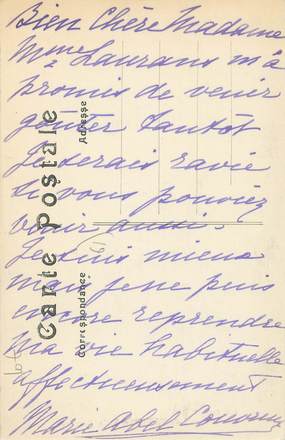 Bien Chère Madame
Mme Laurans m'a
promis de venir
goûter tantôt
Je serais ravie
si vous pouviez
venir aussi.
Je suis mieux
mais je ne puis
encore reprendre
ma vie habituelle
affectueusement
Marie Abel
Carte Postale
Correspondance
Adresse